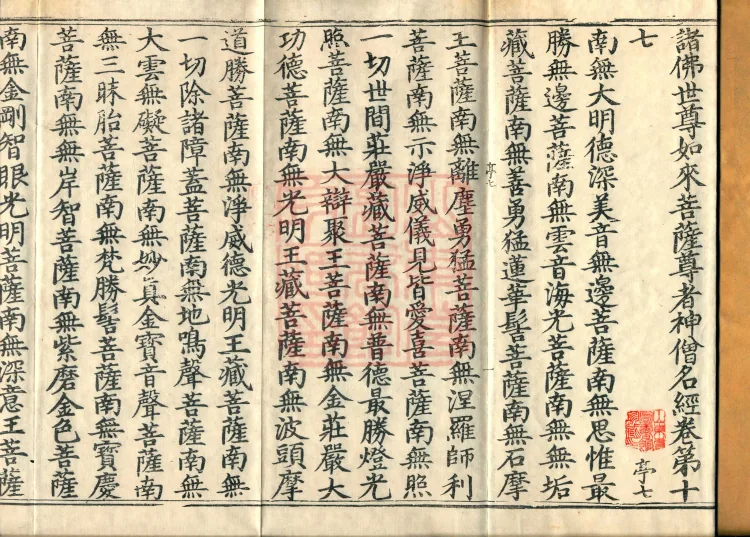 諸佛世尊如來菩薩尊者神僧名經卷第十
七
亭七
南無大明德深美音無邊菩薩南無思惟最
勝無邊菩薩南無雲音海光菩薩南無無垢
藏菩薩南無善勇猛蓮華髻菩薩南無石摩
亭七
王菩薩南無離塵勇猛菩薩南無涅羅師利
菩薩南無示淨威儀見皆愛喜菩薩南無照
一切世間莊嚴藏菩薩南無普德最勝燈光
照菩薩南無大辯聚王菩薩南無金莊嚴大
功德菩薩南無光明王藏菩薩南無波頭摩
道勝菩薩南無淨威德光明王藏菩薩南無
一切除諸障蓋菩薩南無地鳴聲菩薩南無
大雲無礙菩薩南無妙真金寶音聲菩薩南
無三昧胎菩薩南無梵勝髻菩薩南無寶慶
菩薩南無無岸智菩薩南無紫磨金色菩薩
南無金剛智眼光明菩薩南無深意王菩薩